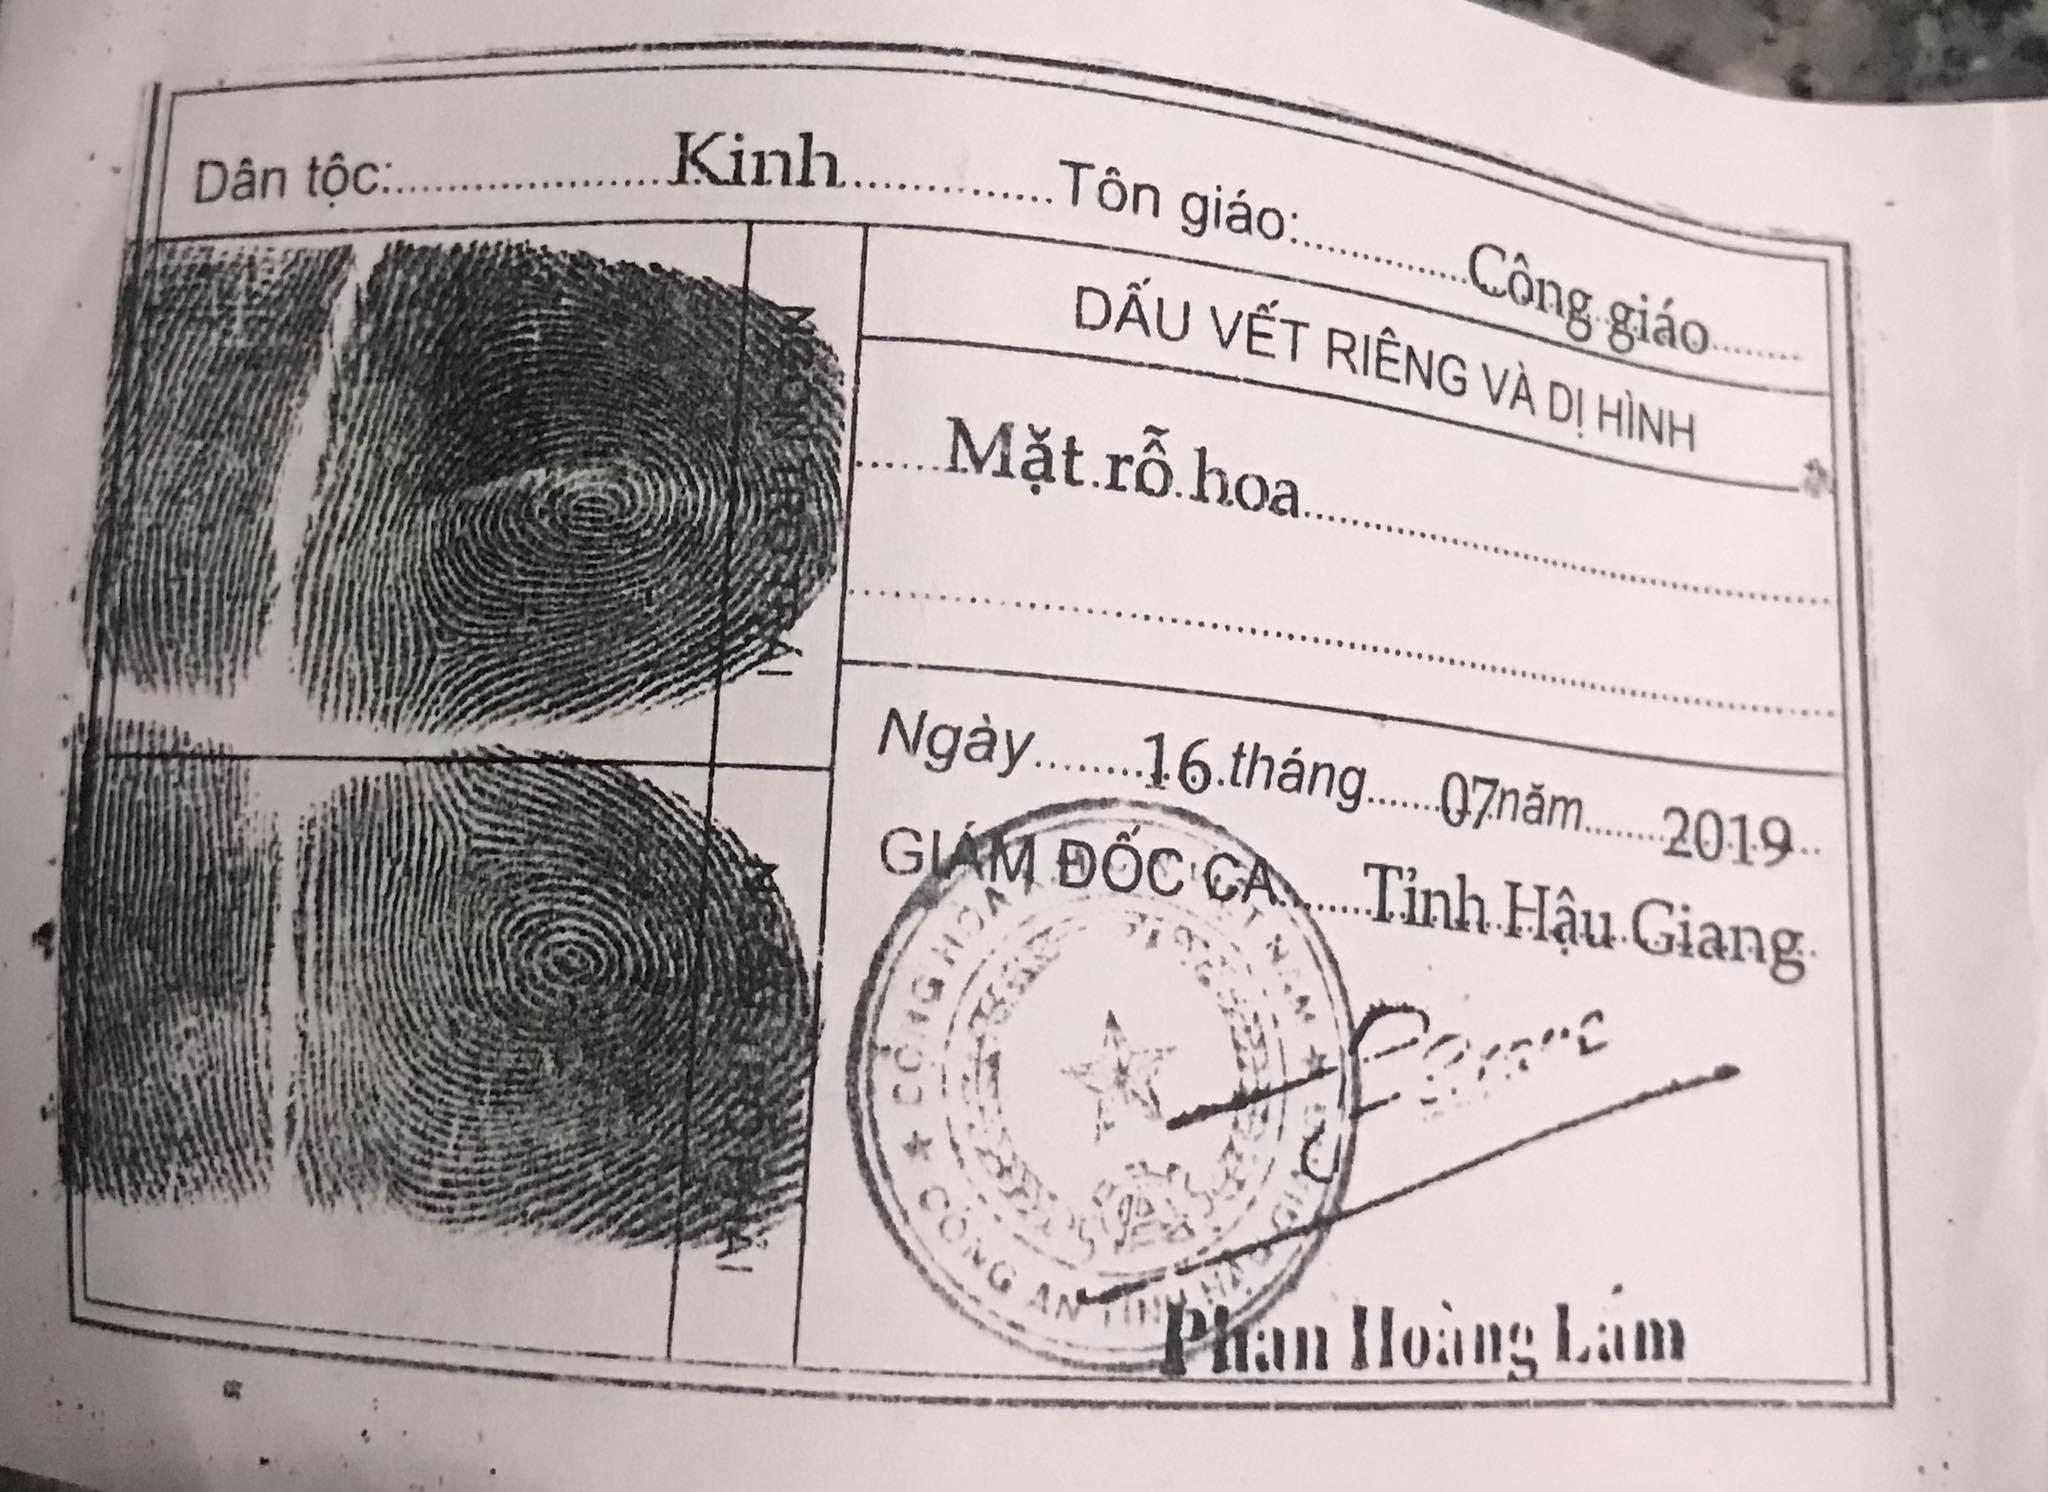 Dân tộc: Kinh Tôn giáo: Công giáo
NGÓN TRỎ TRÁI
NGÓN TRỎ PHẢI
DẤU VẾT RIÊNG VÀ DỊ HÌNH
Mặt rỗ hoa
Ngày 16 tháng 07 năm 2019
GIÁM ĐỐC CA Tỉnh Hậu Giang
CỘNG HÒA NAM
CÔNG AN TỈNH HẬU GIANG
Phan Hoàng Lám